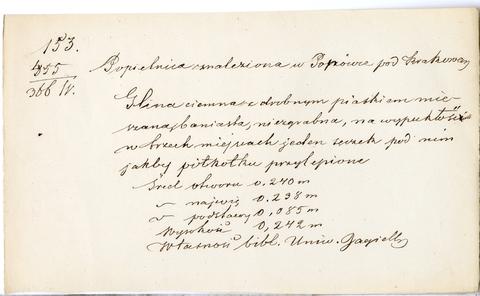 153.
855
366 IV.
Popielnica znaleziona w Popówce pod Krakowem
Glina ciemna z drobnym piaskiem mie-
szana, baniasta, niezgrabna, na wypukłości
w trzech miejscach jeden sęczek pod nim
jakby półkółku przylepione
Śred otworu 0.240 m
" najwię 0.238 m
" podstawy 0,085 m
Wysokość 0,242 m
Własność bibl. Uniw. Jagiell